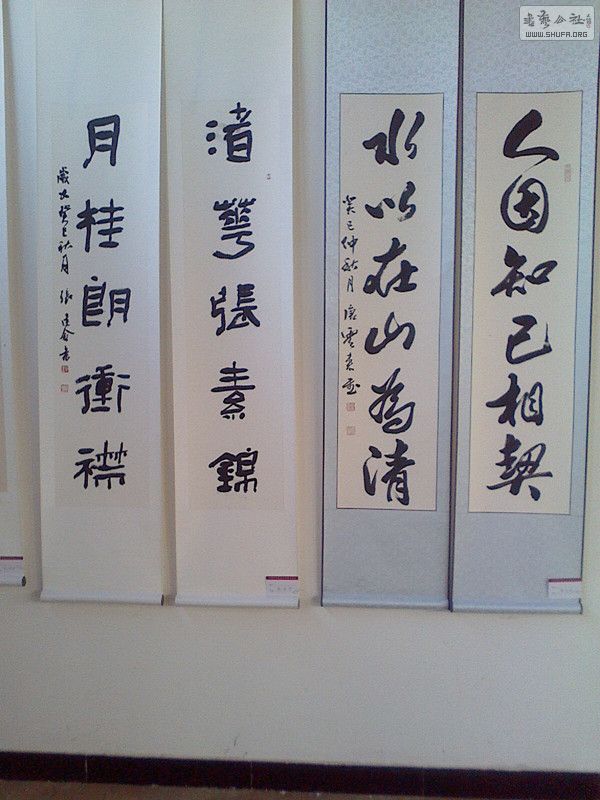 書藝公社
WWW.SHUFA.ORG
人因知己相契
水以在山為清
癸巳仲秋月
渚萼張素錦
月桂朗衝襟
歲次癸巳秋月 張